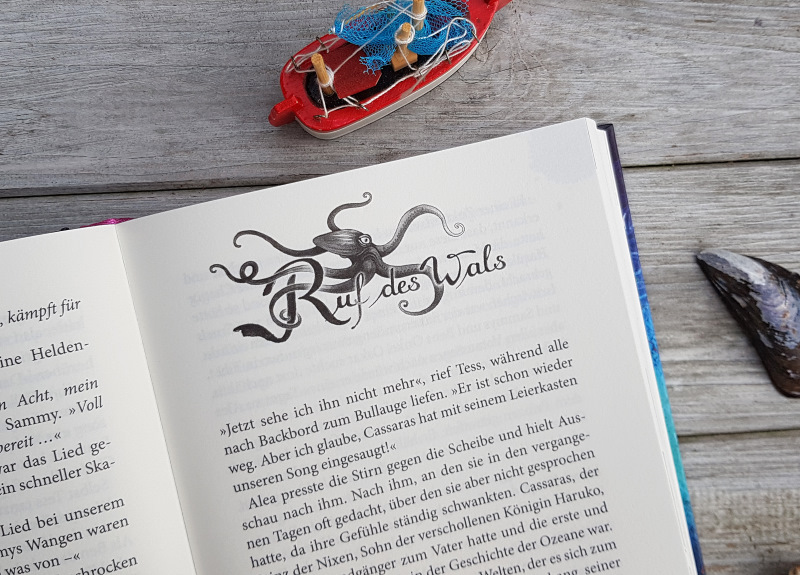 kämpft für
ine Helden-
n Acht, mein
Sammy. »Voll
bereit …«
war das Lied ge-
ein schneller Ska-
Lied bei unserem
mys Wangen waren
was von –«
Ruf des Wals
»Jetzt sehe ich ihn nicht mehr«, rief Tess, während alle
nach Backbord zum Bullauge liefen. »Er ist schon wieder
weg. Aber ich glaube, Cassaras hat mit seinem Leierkasten
unseren Song eingesaugt!«
Alea presste die Stirn gegen die Scheibe und hielt Aus-
schau nach ihm. Nach ihm, an den sie in den vergange-
nen Tagen oft gedacht, über den sie aber nicht gesprochen
hatte, da ihre Gefühle ständig schwankten. Cassaras, der
inz der Nixen, Sohn der verschollenen Königin Haruko,
ndgänger zum Vater hatte und die erste und
in der Geschichte der Ozeane war.
Welten, der es sich zum
hang seiner